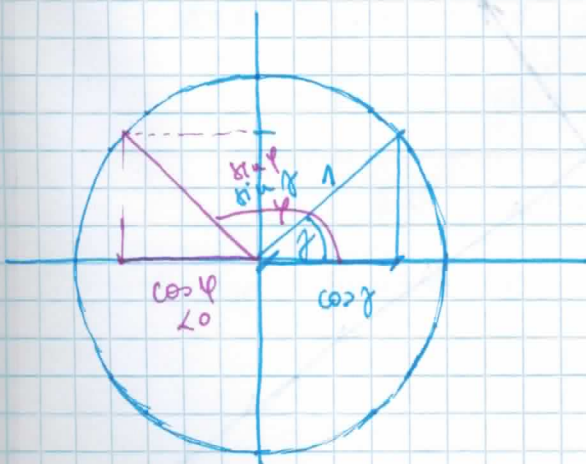 sin φ
sin γ
1
φ
γ
cos φ
<0
cos γ